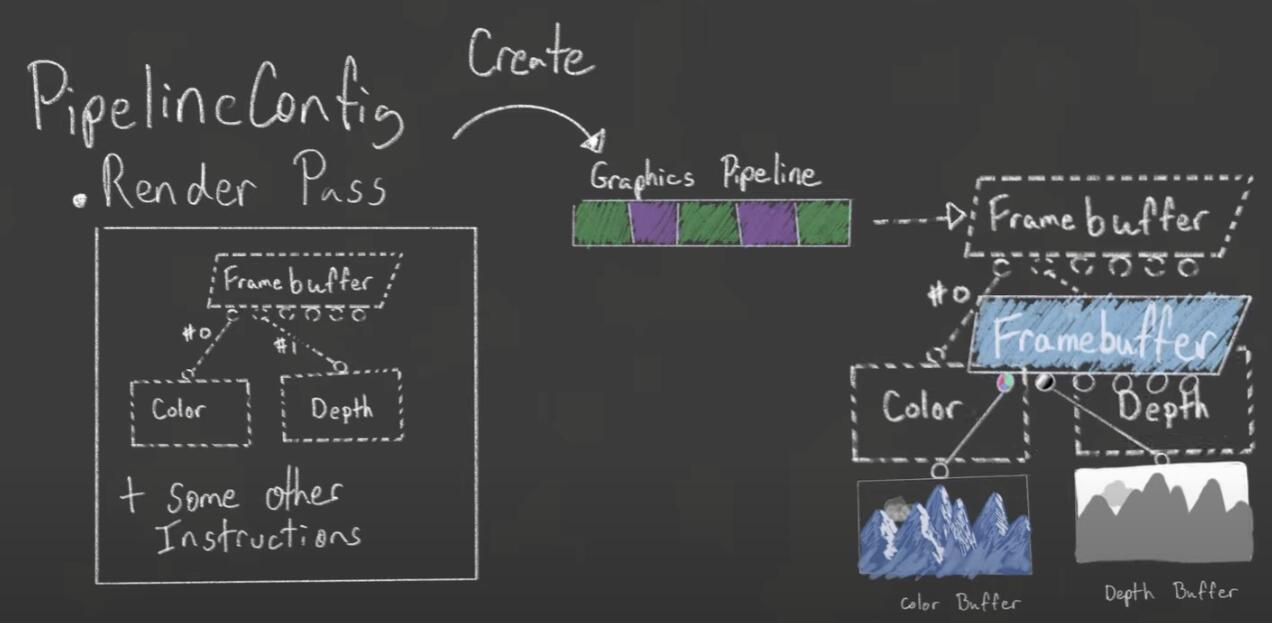 PipelineConfig
. Render Pass
Framebuffer
#0
#1
Color
Depth
+ Some other
Instructions
Create
Graphics Pipeline
Framebuffer
#0
Framebuffer
Color
Depth
Color Buffer
Depth Buffer